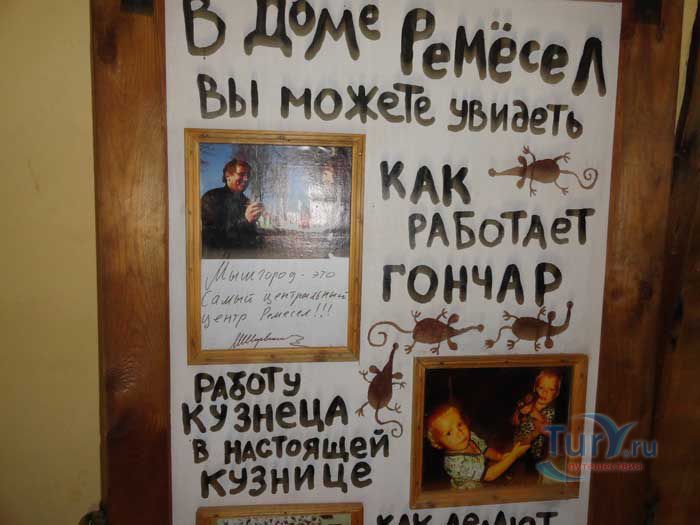 В Доме Ремёсел
Вы можете увидеть
как
работает
гончар
Мышгород - это
Самый центральный
центр Ремесел!!!
работу
кузнеца
в настоящей
кузнице
как делают
Tury.ru
путешествия